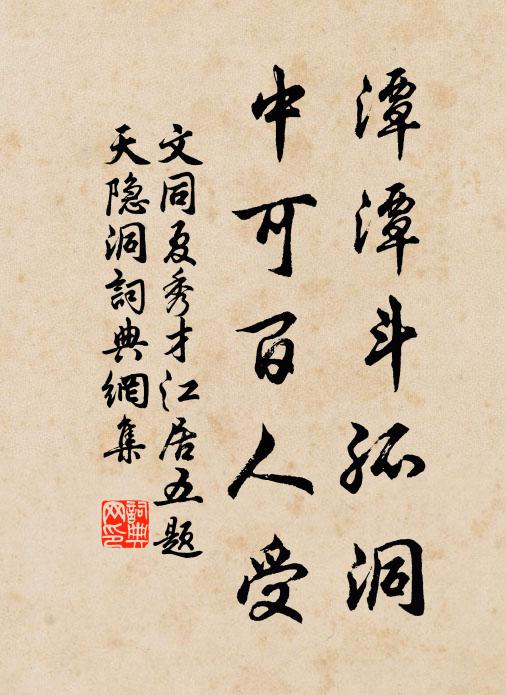 潭潭斗孤洞
中可百人受
文同夏秀才江居五题
天隐洞詞典網集
詞典
网印